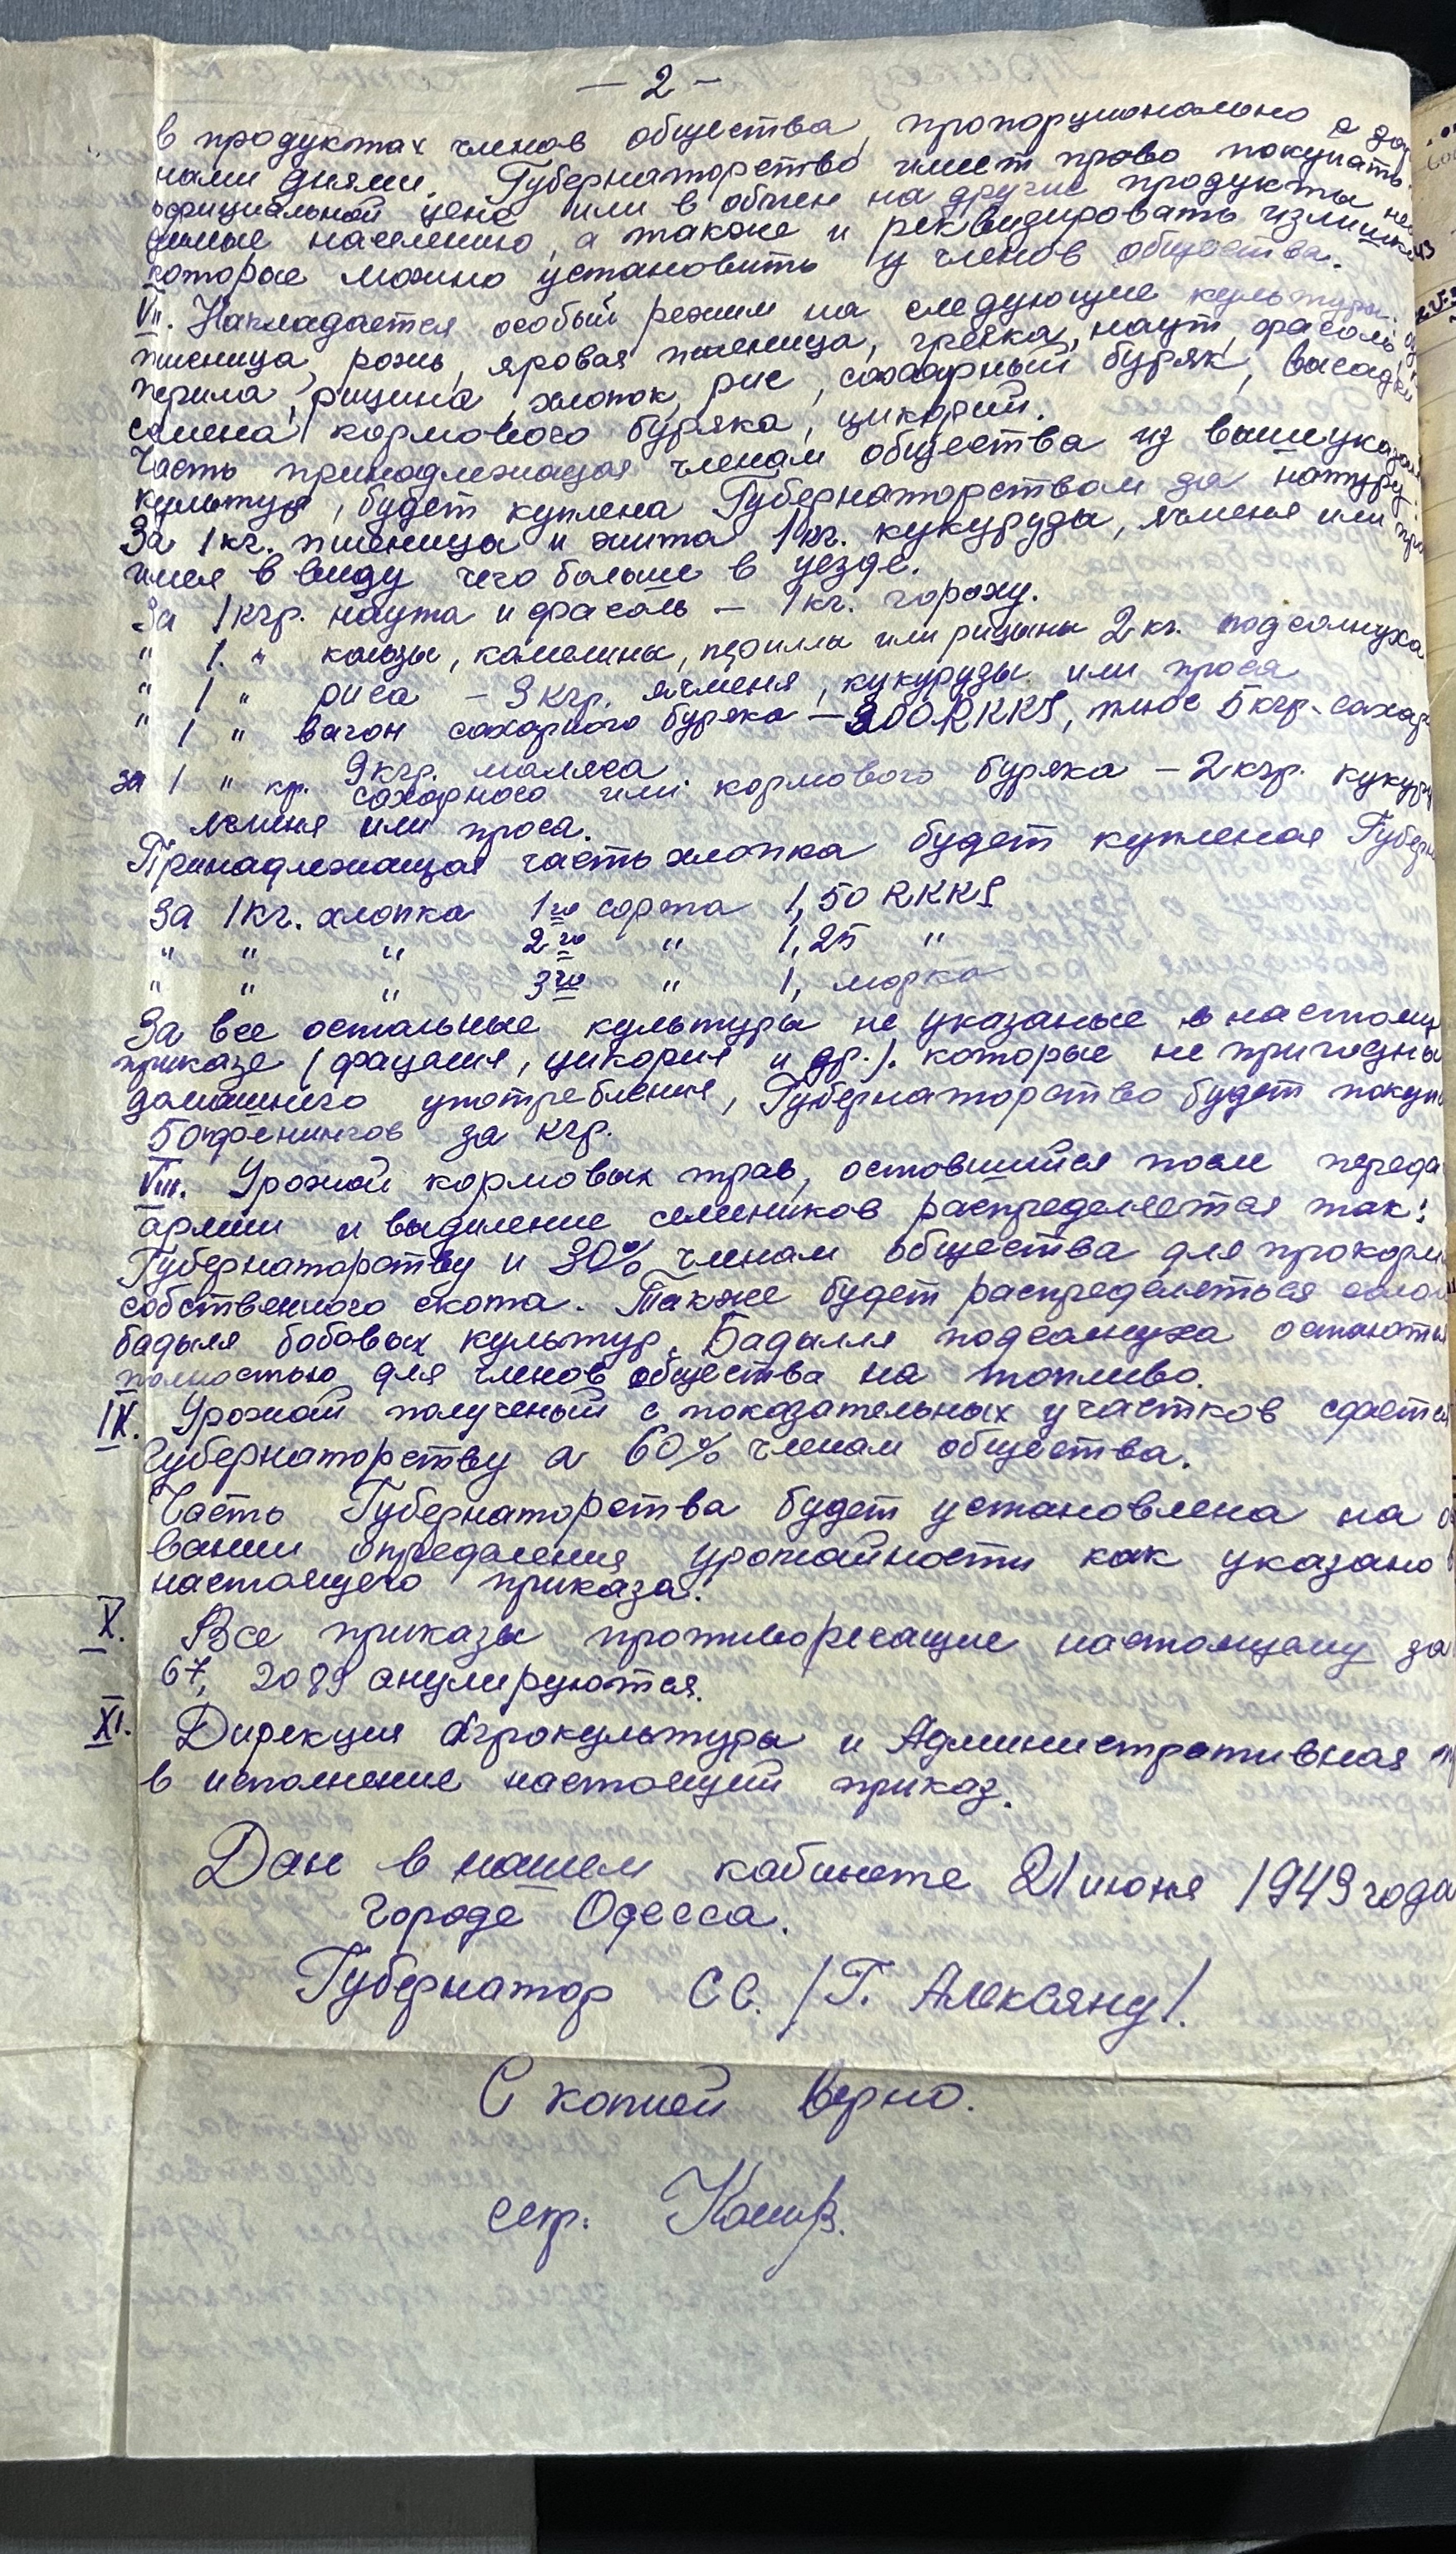 — 2 —
в продуктах членов общества, пропорционально с
ными днями. Губернаторство имеет право покупать
официальной цене или в обмен на другие продукты
димые населению, а также и реквизировать излишки
которые можно установить у членов общества.
VII. Накладается особый режим на следующие культуры:
пшеница, рожь, яровая пшеница, гречка, наут, фасоль,
перила, рицина, хлопок, рис, сахарный буряк, высадки
семена кормового буряка, цикорий.
Часть принадлежащая членам общества из вышеуказан
культур, будет куплена Губернаторством за натуру:
За 1 кг. пшеницы и жита 1 кг. кукурузы, ячменя или про
имея в виду чего больше в уезде.
За 1 кгр. наута и фасоль — 1 кг. гороху.
" 1. " кользы, камелины, периллы или рицины 2 кг. подсолнуха
" 1 " риса — 3 кгр. ячменя, кукурузы или проса
" 1 " вагон сахарного буряка — 300 RKKS, плюс 5 кгр. сахар
9 кгр. маляса
за 1 " кр. сахарного или кормового буряка — 2 кгр. кукуру
ячменя или проса.
Принадлежащая часть хлопка будет купленая Губерн
За 1 кг. хлопка 1го сорта 1,50 RKKS
" " " 2го " 1,25 "
" " " 3го " 1, марка
За все остальные культуры не указаные в настоящ
приказе (фацелия, цикория и др.). которые не пригодны
домашнего употребления, Губернаторство будет покупа
50 пфенингов за кгр.
VIII. Урожай кормовых трав, оставшийся после переда
армии и выделение семеников распределяется так:
Губернаторству и 30% членам общества для прокорм
собственного скота. Также будет распределяться солом
бадыля бобовых культур. Бадылля подсолнуха остаются
полностью для членов общества на топливо.
IX. Урожай полученый с показательных участков сдается
Губернаторству а 60% членам общества.
Часть Губернаторства будет установлена на ос
вании определения урожайности как указано в
настоящего приказа.
X. Все приказы противоречащие настоящему за
67, 2089 анулируются.
XI. Дирекция Агрокультуры и Административная п
в исполнение настоящий приказ.
Дан в нашем кабинете 21 июня 1943 года
городе Одесса.
Губернатор СС. /Г. Алексяну/.
С копией верно.
секр.